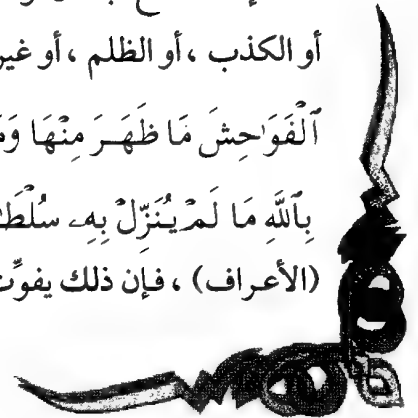 أو الكذب ، أو الظلم ، أو غير
ٱلْفَوَٰحِشَ مَا ظَهَرَ مِنْهَا
بِٱللَّهِ مَا لَمْ يُنَزِّلْ بِهِۦ
(الأعراف) ، فإن ذلك يفوِّت